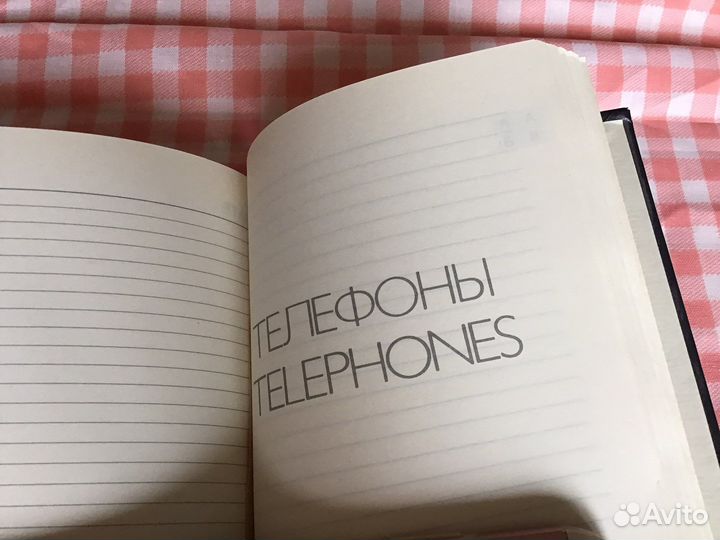 ТЕЛЕФОНЫ
TELEPHONES
Avito